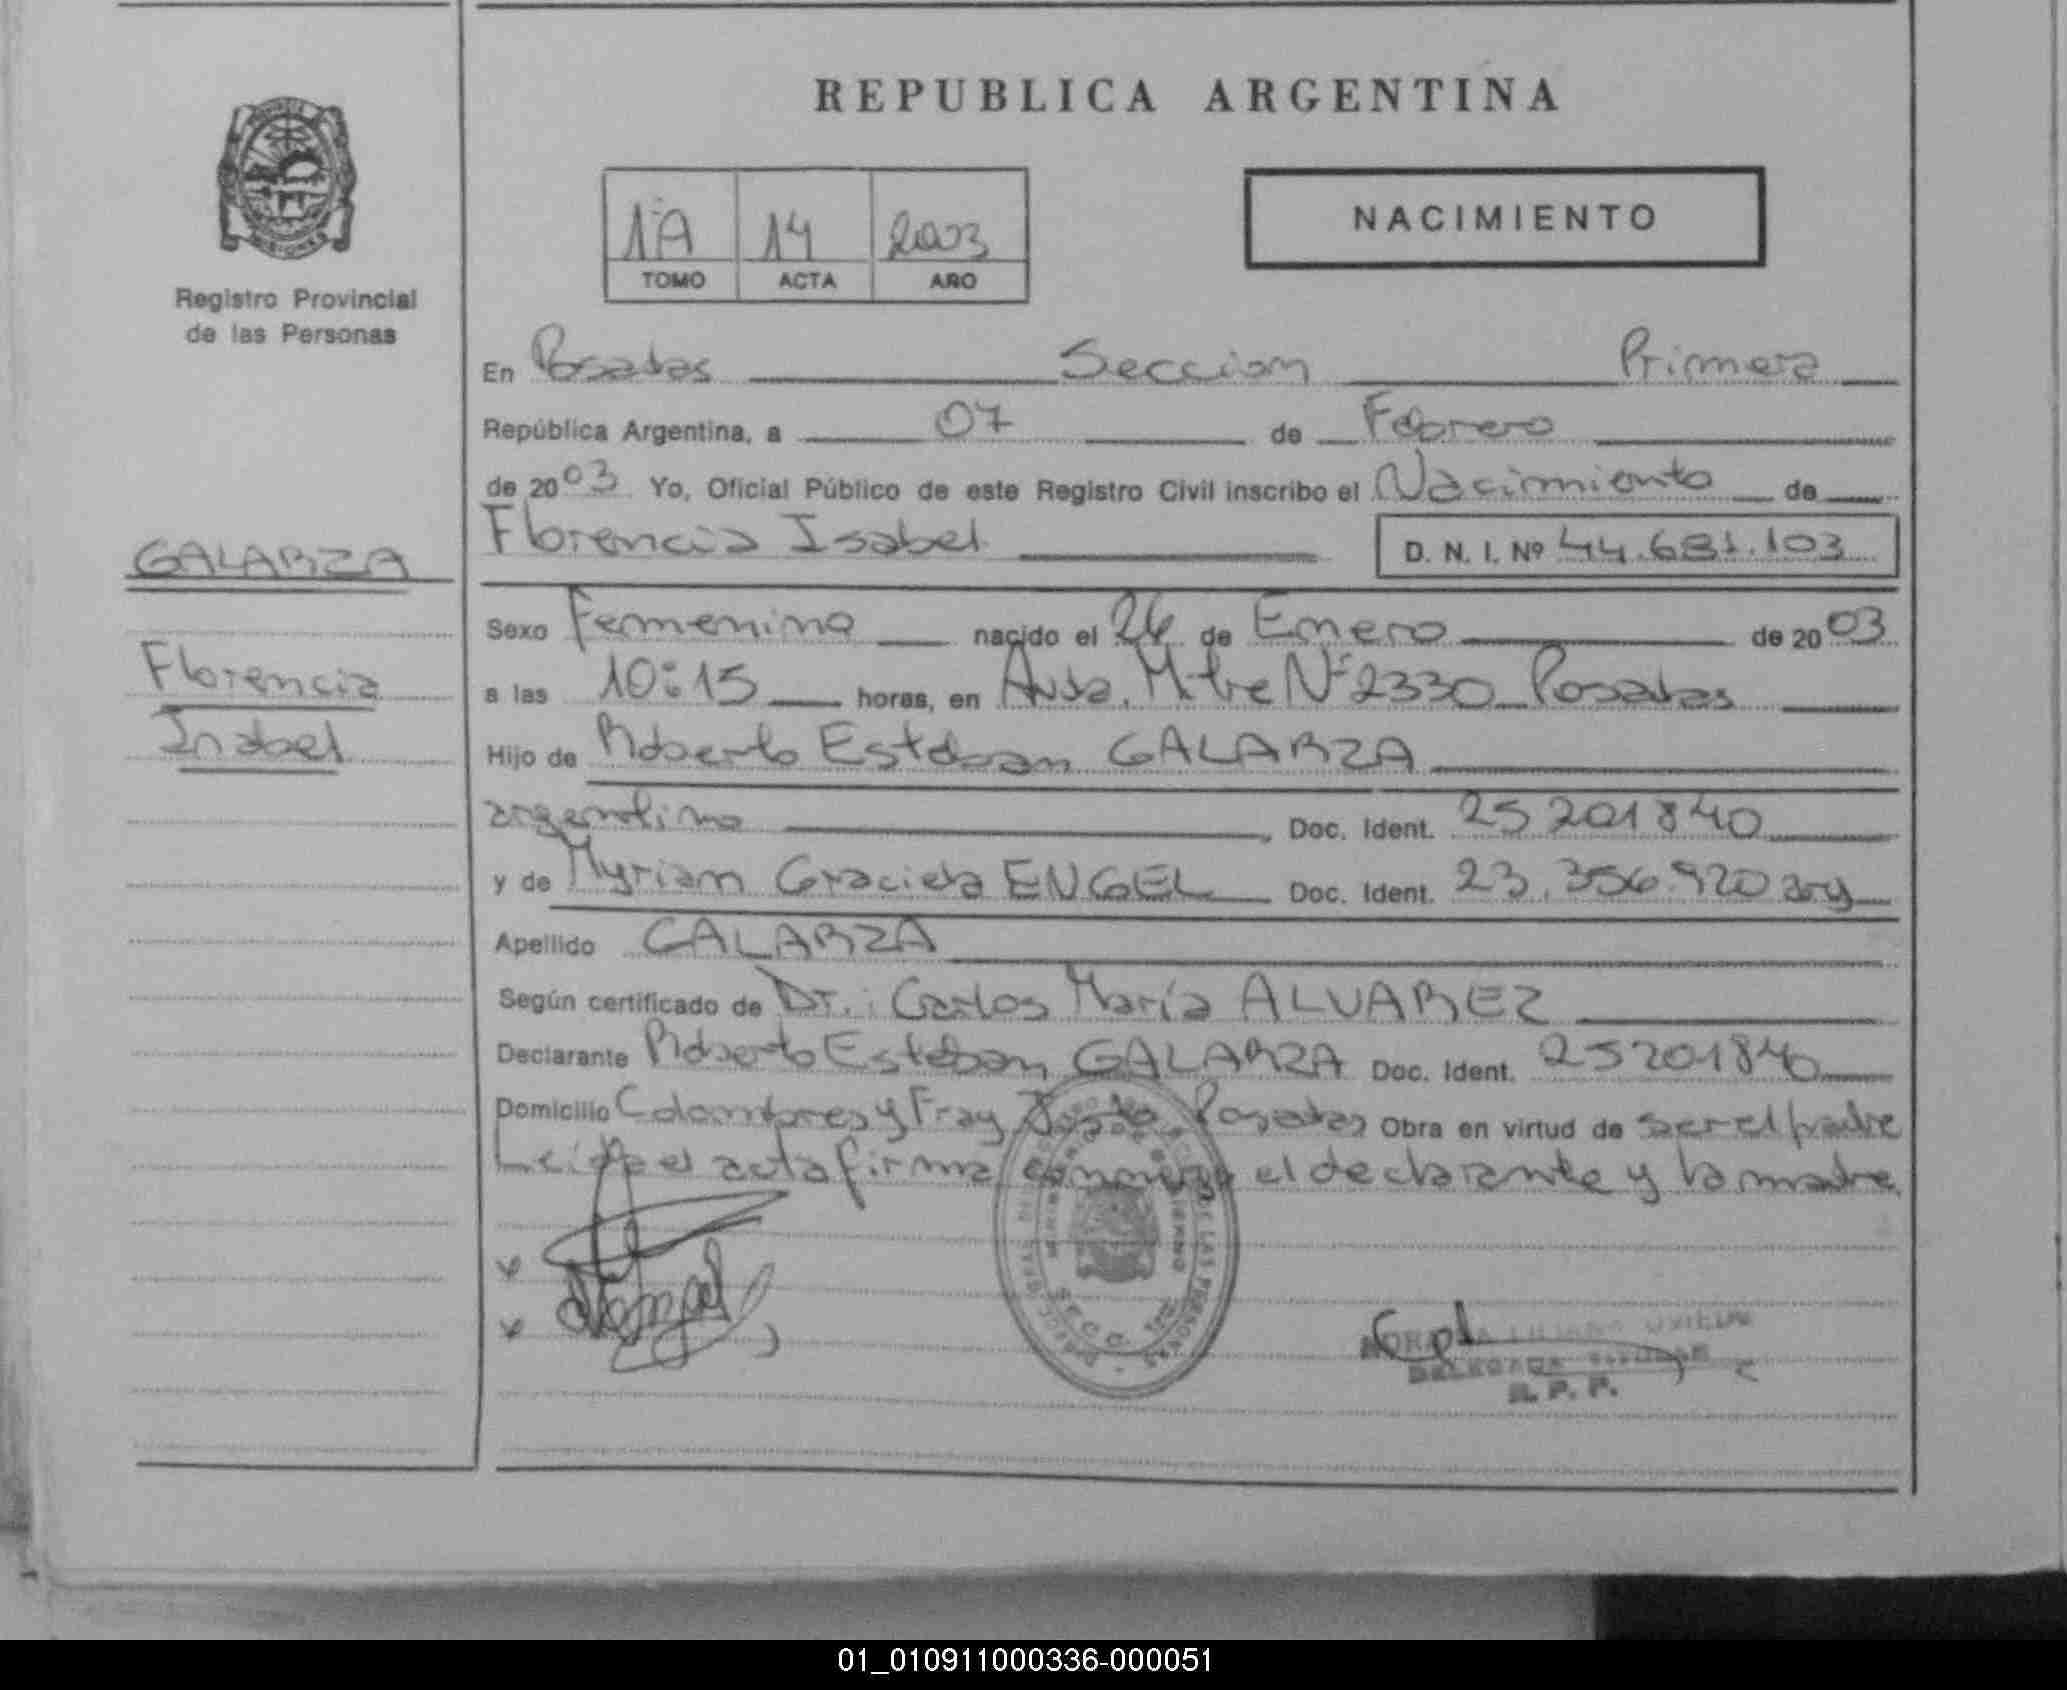 REPUBLICA ARGENTINA
1ºA 14 2003
TOMO ACTA AÑO
NACIMIENTO
Registro Provincial
de las Personas
En Posadas Seccion Primera
República Argentina, a 07 de Febrero
de 2003 Yo, Oficial Público de este Registro Civil inscribo el Nacimiento de
Florencia Isabel D. N. I. Nº 44.681.103
GALARZA
Florencia
Isabel
Sexo Femenino nacido el 26 de Enero de 2003
a las 10:15 horas, en Avda. Mitre Nº 2330 Posadas
Hijo de Roberto Esteban GALARZA
argentino, Doc. Ident. 25201840
y de Myriam Graciela ENGEL Doc. Ident. 23.356.920 arg
Apellido GALARZA
Según certificado de Dr.: Carlos María ALVAREZ
Declarante Roberto Esteban GALARZA Doc. Ident. 25201840
Domicilio Colombres y Fray Posadas Obra en virtud de ser el padre
Leida el acta firma conmigo el declarante y la madre
LILIANA OVIEDO
DELEGADA TITULAR
R. P. P.
01_010911000336-000051